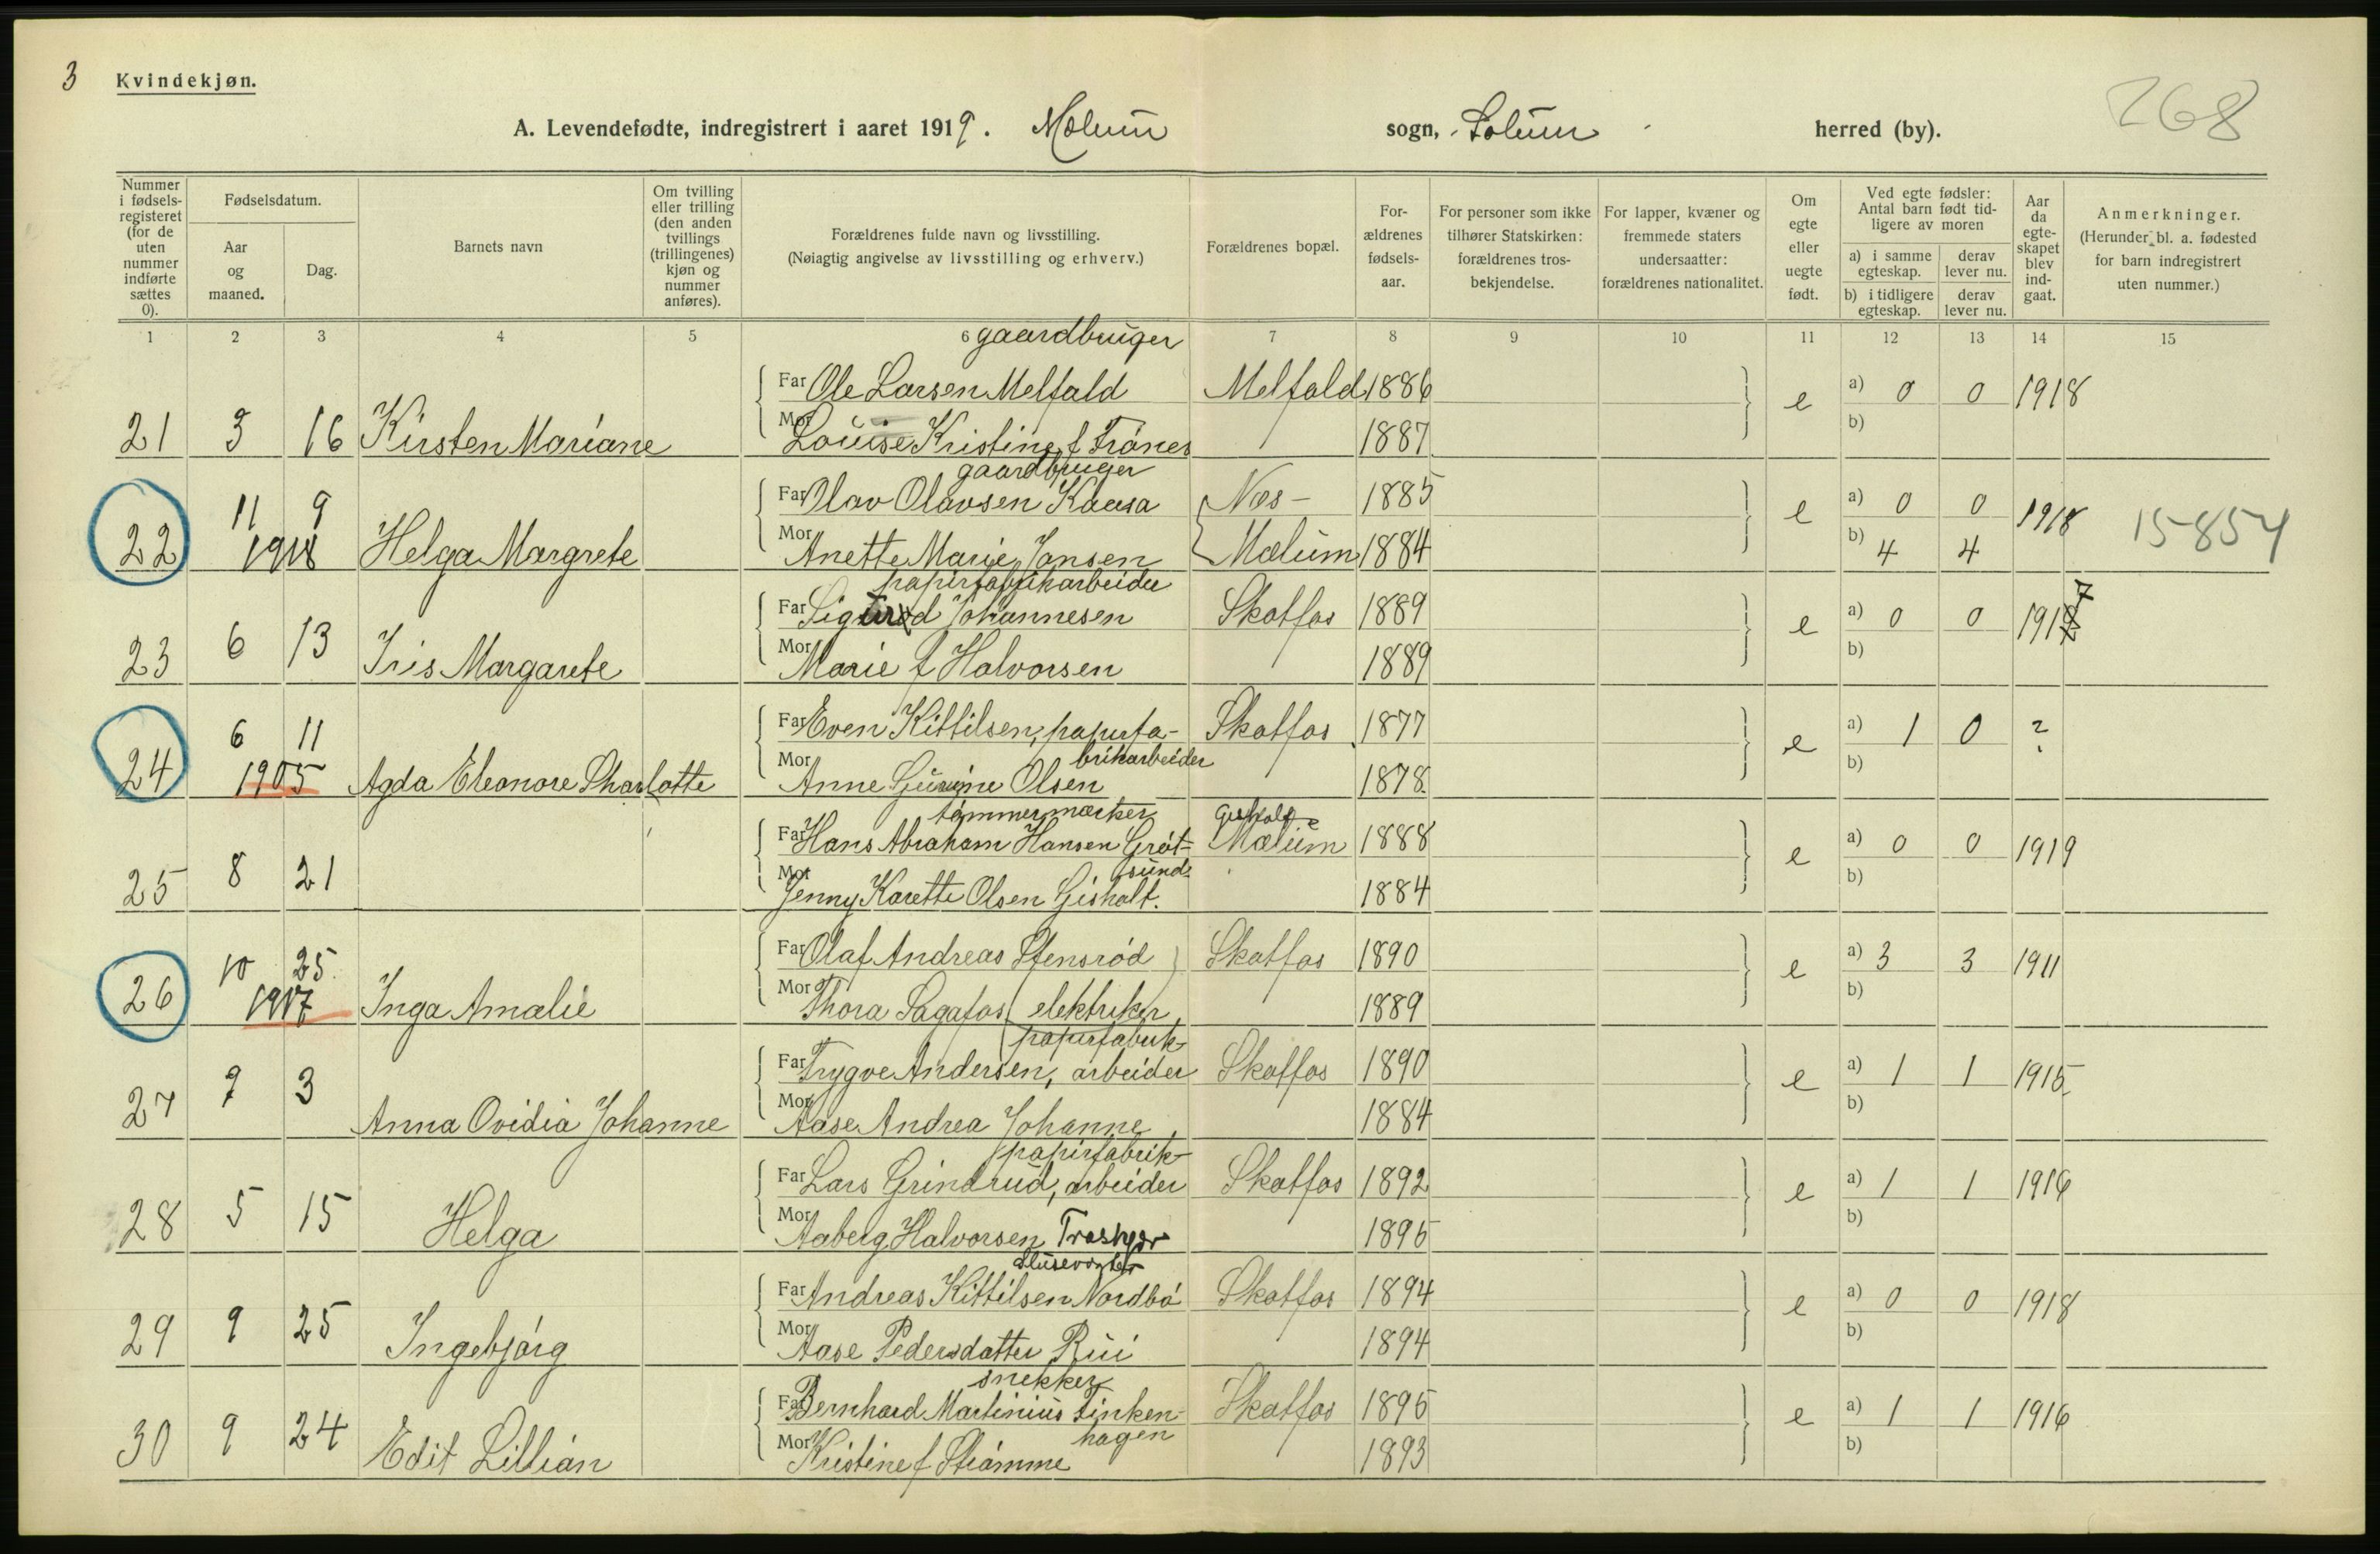 3 Kvindekjøn.
268
A. Levendefødte, indregistrert i aaret 1919. Mælum sogn, Solum herred (by).
Nummer i fødsels-registeret (for de uten nummer indførte sættes 0).
Fødselsdatum.
Aar og maaned.
Dag.
Barnets navn
Om tvilling eller trilling (den anden tvillings (trillingenes) kjøn og nummer anføres).
Forældrenes fulde navn og livsstilling.
(Nøiagtig angivelse av livsstilling og erhverv.)
Forældrenes bopæl.
For-ældrenes fødsels-aar.
For personer som ikke tilhører Statskirken: forældrenes tros-bekjendelse.
For lapper, kvæner og fremmede staters undersaatter: forældrenes nationalitet.
Om egte eller uegte født.
Ved egte fødsler: Antal barn født tid-ligere av moren
a) i samme egteskap. derav lever nu.
b) i tidligere egteskap. derav lever nu.
Aar da egte-skapet blev ind-gaat.
Anmerkninger.
(Herunder bl. a. fødested for barn indregistrert uten nummer.)
1 2 3 4 5 6 7 8 9 10 11 12 13 14 15
gaardbruger
Far Ole Larsen Melfald Melfald 1886 e a) 0 0 1918
21 3 16 Kirsten Mariane Mor Louise Kristine f Trånes 1887 b)
gaardbruger
11 9 Far Olav Olavsen Kaasa Næs- 1885 e a) 0 0 1918 15854
22 1918 Helga Margrete Mor Anette Marie Jansen Mælum 1884 b) 4 4
papirfabrikarbeider
Far Sigurd Johannesen Skotfos 1889 e a) 0 0 1917
23 6 13 Iris Margarete Mor Marie f Halvorsen 1889 b)
6 11 Far Even Kittilsen, papirfa- Skotfos 1877 e a) 1 0 ?
brikarbeider
24 1905 Agda Eleonore Sharlotte Mor Anne Olsen 1878 b)
tømmermærker
Far Hans Abraham Hansen Grøt- Mælum 1888 e a) 0 0 1919
sund
25 8 21 Mor Jenny Karette Olsen Gisholt. 1884 b)
10 25 Far Olaf Andreas Stensrød Skotfos 1890 e a) 3 3 1911
26 1917 Inga Amalie Mor Thora Sagafos elektriker 1889 b)
papirfabrik
Far Trygve Andersen, arbeider Skotfos 1890 e a) 1 1 1915
27 3 Anna Ovidia Johanne Mor Aase Andrea Johanne 1884 b)
papirfabrik
Far Lars Grindrud, arbeider Skotfos 1892 e a) 1 1 1916
28 5 15 Helga Mor Aaberg Halvorsen 1895 b)
slusevogter
Far Andreas Kittilsen Nordbø Skotfos 1894 e a) 0 0 1918
29 9 25 Ingebjørg Mor Aase Pedersdatter Rui 1894 b)
snekker
Far Bernhard Martinius Finken- Skotfos 1895 e a) 1 1 1916
hagen
30 9 24 Edit Lillian Mor Kristine f Strømme 1893 b)